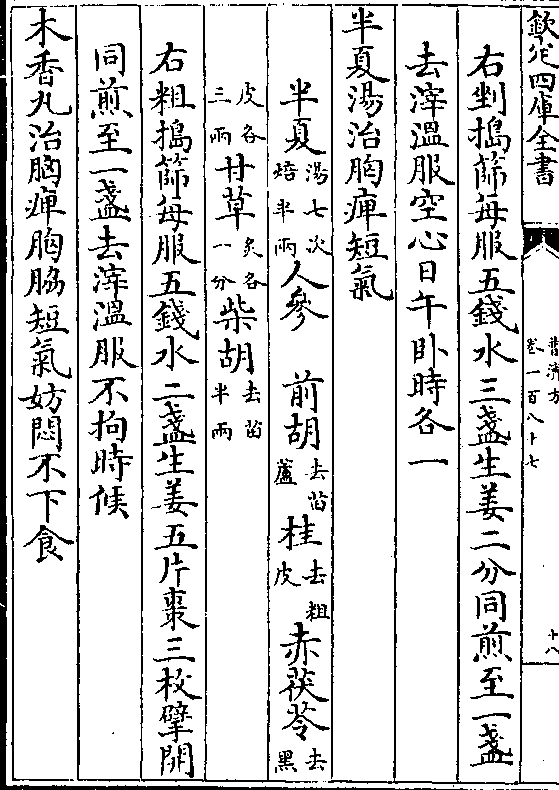 欽定四庫全書
普濟方
卷一百八十七
十八
右剉搗篩每服五錢水三盞生姜二分同煎至一盞
去滓溫服空心日午卧時各一
半夏湯治胸痺短氣
半夏湯七次焙半兩人參 前胡去苗蘆桂去粗皮赤茯苓去黑
皮各三兩甘草炙各一分柴胡去苗半兩
右粗搗篩每服五錢水二盞生姜五片棗三枚擘開
同煎至一盞去滓溫服不拘時候
木香丸治胸痺胸脇短氣妨悶不下食